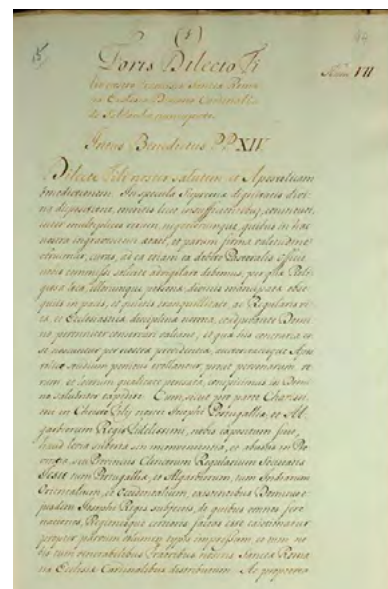 (5)
15
Foris Dilecto Fi
Num VII
lio nostro Francisco Sanctæ Roma
næ Ecclesiæ Diacono Cardinali
de Saldanha nuncupato.
Intus Benedictus P.P. XIV.
Dilecte Fili noster salutem et Apostolicam
benedictionem. In specula Suprema dignitatis divi
na dispositione, meritis licet insufficientibus, constituti,
inter multiplices curas, negotiorumque, quibus in hac
nostra ingravescente ætate, et parum firma valetudine
obruimur, curas, ad ea etiam ex debito Pastoralis Officii
nobis commissi solicite advigilare debemus, per quæ Reli
giosa loca, illorumque personæ, divinis mancipatæ obse
quiis in pacis, et quietis tranquillitate, ac Regularis vi
ta, et Ecclesiastica disciplina norma, cooperante Domi
no perenniter conservari valeant, et quæ his contraria es
se noscuntur per nostræ providentiæ, auctoritatisque Apos
tolicæ studium penitus evellantur, prout personarum, re
rum et locorum qualitate pensata, conspicimus in Domi
no salubriter expedire. Cum sicut pro parte Charissi
mi in Christo Filii nostri Josephi Portugalliæ, et Al
garbiorum Regis Fidelissimi, nobis expositum fuit,
haud levia suborta sint inconvenientia, et abusus in Pro
vincia, seu Provinciis Clericorum Regularium Societatis
Jesu tum Portugalliæ, et Algarbiorum, tum Indiarum
Orientalium, et Occidentalium, existentibus Dominio e
jusdem Josephi Regis subjectis, de quibus omnes fere
nationes,
propter parvum volumen typis impressum, et tum no
bis tum venerabilibus Fratribus nostris Sanctæ Roma
næ Ecclesiæ Cardinalibus distributum. Ac propterea